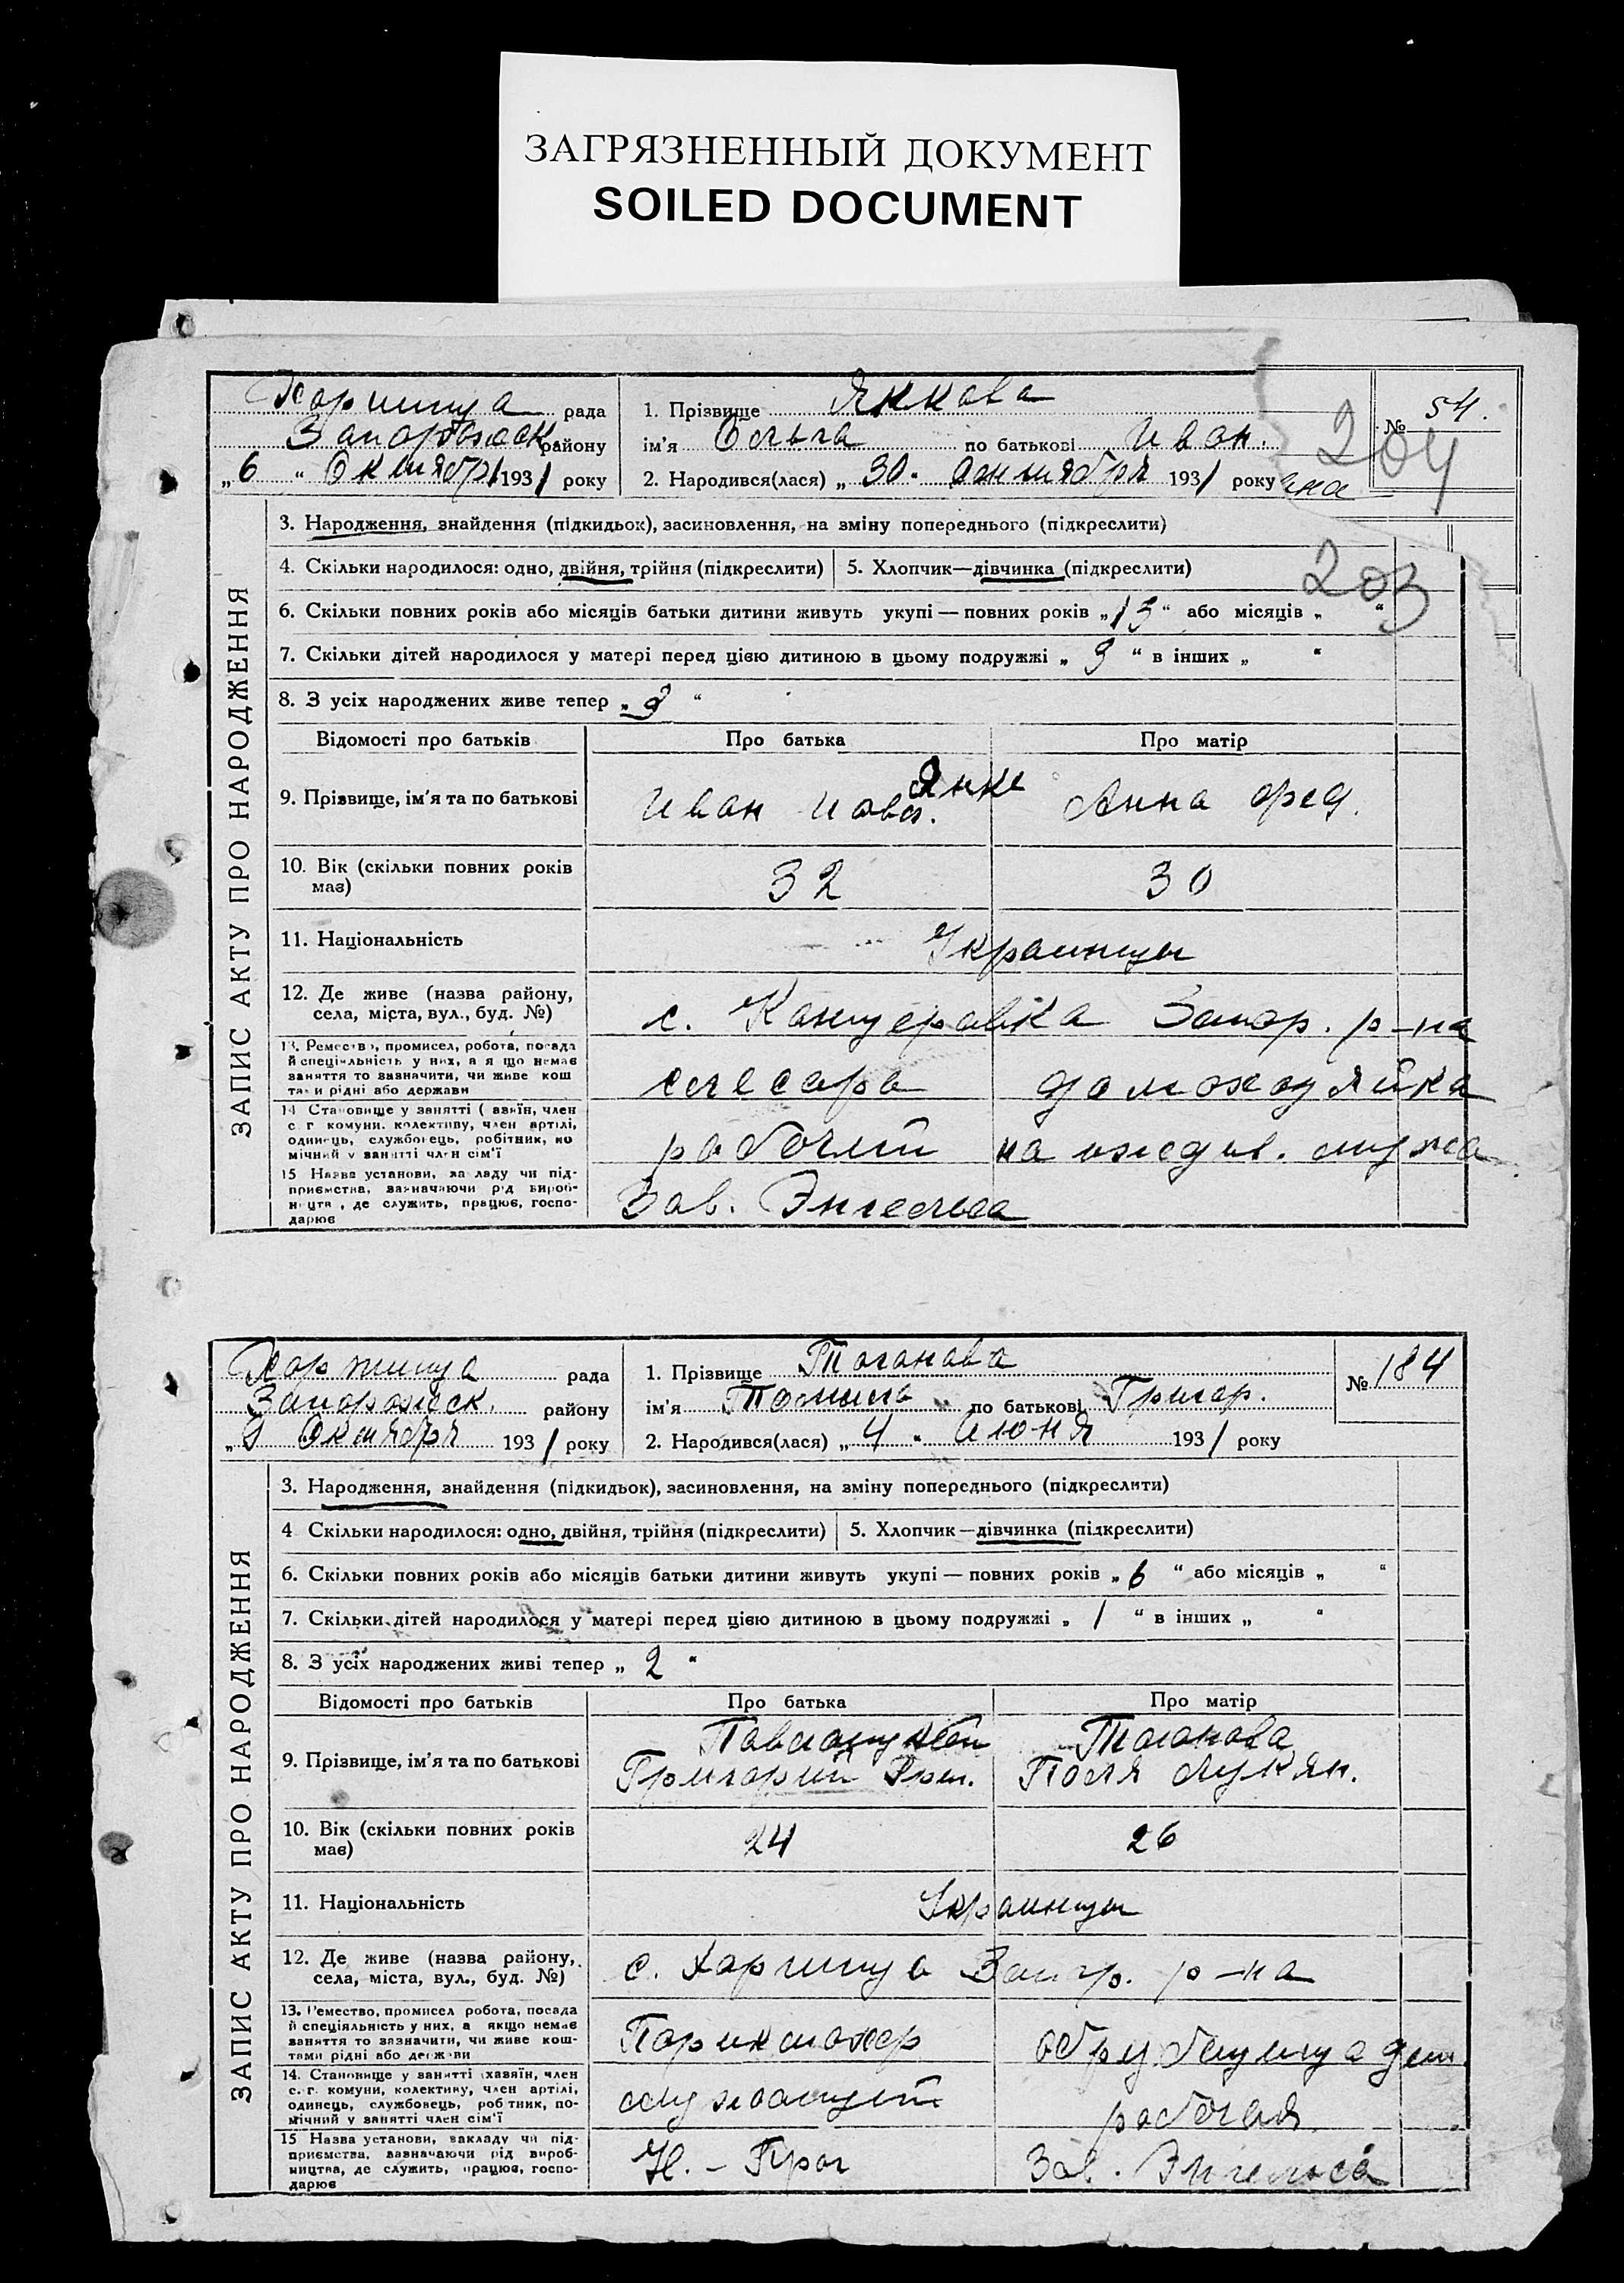 ЗАГРЯЗНЕННЫЙ ДОКУМЕНТ
SOILED DOCUMENT
Хортица рада
Запорожск. району
„6“ Октября 1931 року
1. Прізвище Янкова
ім'я Ольга по батькові Иван.
2. Народився(лася) „30“ 1931 року
№ 54.
204
203
ЗАПИС АКТУ ПРО НАРОДЖЕННЯ
3. Народження, знайдення (підкидьок), засиновлення, на зміну попереднього (підкреслити)
4. Скільки народилося: одно, двійня, трійня (підкреслити) 5. Хлопчик—дівчинка (підкреслити)
6. Скільки повних років або місяців батьки дитини живуть укупі — повних років „13“ або місяців „ “
7. Скільки дітей народилося у матері перед цією дитиною в цьому подружжі „3“ в інших „ “
8. З усіх народжених живе тепер „3“
Відомості про батьків Про батька Про матір
9. Прізвище, ім'я та по батькові Иван Янке Анна Фед.
10. Вік (скільки повних років має) 32 30
11. Національність Украинцы
12. Де живе (назва району, села, міста, вул., буд. №) с. Канцеровка Запор. р-на
13. Ремество, промисел, робота, посада й спеціяльність у них, а якщо немає заняття то зазначити, чи живе коштами рідні або держави слесарь домохозяйка
14. Становище у занятті (хазяїн, член с. г. комуни, колективу, член артілі, одинець, службовець, робітник, помічний у занятті член сім'ї рабочий на иждив. мужа
15 Назва установи, закладу чи підприємства, зазначаючи рід виробництва, де служить, працює, господарює Зав. Энгельса
Хортица рада
Запорожск. району
Октября 1931 року
1. Прізвище Таганова
ім'я по батькові Григор.
2. Народився(лася) „4“ Июня 1931 року
№ 184
ЗАПИС АКТУ ПРО НАРОДЖЕННЯ
3. Народження, знайдення (підкидьок), засиновлення, на зміну попереднього (підкреслити)
4 Скільки народилося: одно, двійня, трійня (підкреслити) 5. Хлопчик—дівчинка (підкреслити)
6. Скільки повних років або місяців батьки дитини живуть укупі — повних років „6“ або місяців „ “
7. Скільки дітей народилося у матері перед цією дитиною в цьому подружжі „1“ в інших „ “
8. З усіх народжених живі тепер „2“
Відомості про батьків Про батька Про матір
Таганова
9. Прізвище, ім'я та по батькові Григорий Григ. Поля Лукян.
10. Вік (скільки повних років має) 24 26
11. Національність Украинцы
12. Де живе (назва району, села, міста, вул., буд. №) с. Хортица Запор. р-на
13. Ремество, промисел робота, посада й спеціяльність у них, а якщо немає заняття то зазначити, чи живе коштами рідні або держави Парикмахер
14. Становище у занятті хазяїн, член с. г. комуни, колективу, член артілі, одинець, службовець, робітник, помічний у занятті член сім'ї служащий рабочая
15 Назва установи, закладу чи підприємства, зазначаючи рід виробництва, де служить, працює, господарює Зав. Энгельса